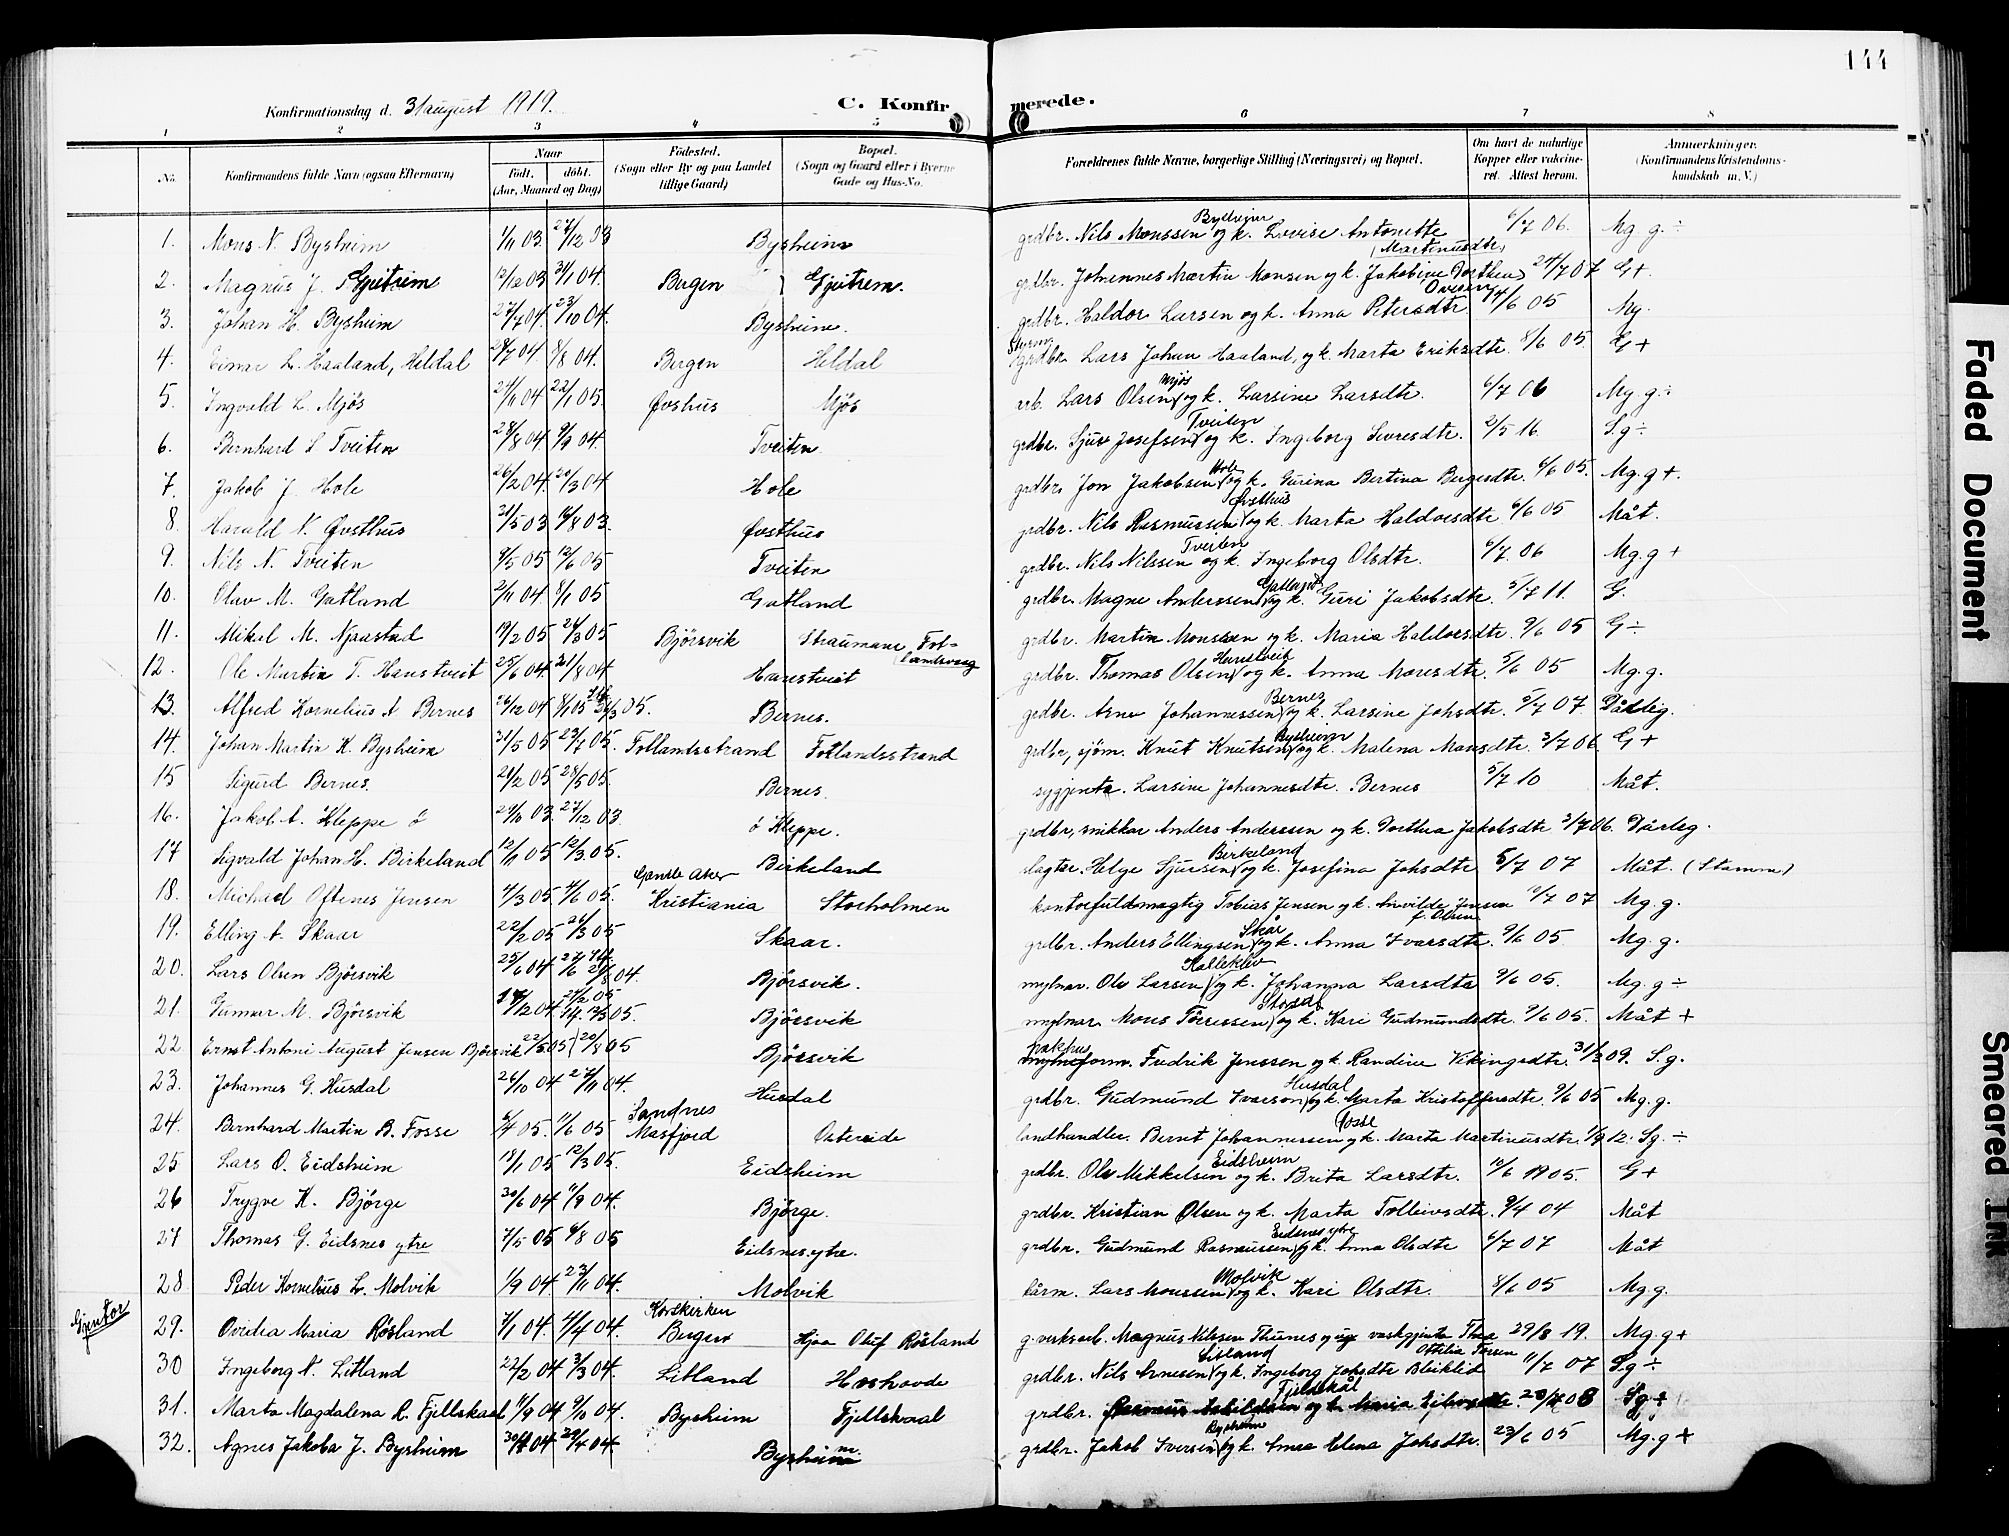 144
Konfirmationsdag d. 31 august 1919.
C. Konfirmerede.
1 2 3 4 5 6 7 8
No. Konfirmandens fulde Navn (ogsaa Efternavn) Naar Født. døbt. (Aar, Maaned og Dag) Fødested. (Sogn eller By og paa Landet tillige Gaard) Bopæl. (Sogn og Gaard eller i Byerne Gade og Hus-No. Forældrenes fulde Navne, borgerlige Stilling (Næringsvei) og Bopæl. Om havt de naturlige Kopper eller vakcineret. Attest herom. Anmerkninger. (Konfirmandens Kristendomskundskab m. V.)
1. Mons N. Bysheim 1/11 03 27/12 03 Bysheim grdbr. Nils Monssen Bysheim og k. Lovise Antonette 6/7 06. Mg. g. ÷
2. Magnus J. Gjeitrem 12/12 03 31/1 04. Bergen Gjeitrem. grdbr. Johannes Martin Monsen og k. Jakobine Dorthea Martinusdtr. 24/7 07 G+.
3. Johan H. Bysheim 27/7 04. 23/10 04. Bysheim. grdbr. Haldor Larsen og k. Anna Petersdtr. 14/6 05 Mg.
4. Einar L. Haaland, Heldal 28/7 04 8/8 04. Bergen Heldal grdbr. Lars Johan Haaland, og k. Marta Eriksdtr. 8/6 05. G +
5. Ingvald L. Mjøs 21/11 04 22/1 05. Øvsthus Mjøs arb. Lars Olsen Mjøs og k. Larsine Larsdtr. 6/7 06 Mg. g. ÷
6. Bernhard S Tveiten 28/8 04 9/9 04. Tveiten grdbr. Sjur Josefsen Tveiten og k. Ingeborg Sivresdtr. 2/5 16. S.g ÷
7. Jakob J. Hole 26/2 04 20/3 04 Hole grdbr. Jon Jakobsen Hole og k. Gurina Bertina Bergesdtr. 6/6 05. Mg. g +.
8. Harald N. Øvsthus 31/5 03 16/8 03. Øvsthus grdbr. Nils Rasmussen Øvsthus og k. Marta Haldorsdtr. 6/6 05 Måt.
9. Nils N. Tveiten 4/5 05 12/6 05 Tveiten grdbr. Nils Nilssen Tveiten og k. Ingeborg Olsdtr. 6/7 06 Mg. g +
10. Olav M. Gatland 2/11 04. 8/1 05 Gatland grdbr. Magne Anderssen Gatland og k. Guri Jakobsdtr. 5/7 11. G.
11. Mikel M. Njaastad 19/2 05 26/3 05 Bjørsvik Straumane Fotlandsvaag grdbr. Martin Monssen og k. Maria Haldorsdtr. 9/6 05 G ÷
12. Ole Martin T. Hanstveit 25/6 04. 21/8 04 Hanstveit grdbr. Thomas Olsen Hanstveit og k. Anna Monsdtr. 5/6 05 Mg. g.
13. Alfred Kornelius A Bernes 26/12 04 8/1 05 /3 05. Bernes. grdbr. Arne Johannessen Bernes og k. Larsine Johsdtr. 5/7 07 Dårleg.
14. Johan Martin K. Bysheim 31/5 05 23/7 05. Fotlandsstrand Fotlandsstrand grdbr, sjøm. Knut Knutsen Bysheim og k. Malena Monsdtr. 3/7 06 G +
15 Sigurd Bernes. 24/2 05 28/5 05. Bernes. sygjenta. Larsine Johannesdtr. Bernes 5/7 10 Måt.
16. Jakob A. Kleppe ö 29/10 03. 27/12 03. ö Kleppe. grdbr, snikkar Anders Anderssen og k. Dorthea Jakobsdtr 3/7 06. Dårleg.
17 Sigvald Johan H. Birkeland 12/1 05 12/3 05. Birkeland slagtar. Helge Sjursen Birkeland og k. Josefina Johsdtr 5/7 07 Måt. (Stamm)
18. Michael Oftenes Jensen 4/3 05 4/6 05. Gamle Aker Kristiania Storholmen kontorfuldmægtig Tobias Jensen og k. Anvilde Jensen f. Olsen 2/7 07 Mg. g.
19. Elling A. Skaar 22/2 05 26/3 05 Skaar. grdbr. Anders Ellingsen Skår og k. Anna Ivarsdtr. 9/6 05 Mg. g.
20. Lars Olsen Bjørsvik 25/6 04 27/6 28/8 04. Bjørsvik. mylnar. Ole Larsen Kalleklev og k. Johanna Larsdtr 9/6 05. Mg. g ÷
21. Gunnar M. Bjørsvik /12 04. 27/2 05 05. Bjørsvik mylnar. Mons Tørressen og k. Kari Gudmundsdtr. 9/6 05. Måt +
22 Ernst Antoni August Jensen Bjørsvik 22/5 05 20/8 05 Bjørsvik pakhusform. Fredrik Jenssen og k. Randine Vikingsdtr. 31/2 09. S. g.
23. Johannes G. Husdal 26/10 04 27/11 04. Husdal grdbr. Gudmund Iverson Husdal og k. Marta Kristoffersdtr. 9/6 05 Mg. g.
24. Bernhard Martin B. Fosse 6/4 05. 11/6 05 Sandnes Masfjord Ostereide landhandler. Bernt Johannessen Fosse og k. Marta Martinusdtr. 1/9 12. Sg. ÷
25 Lars O. Eidsheim 18/1 05 12/3 05. Eidsheim grdbr. Ole Mikkelsen Eidsheim og k. Brita Larsdtr. 10/6 05. G +
26 Trygve K. Bjørge 30/6 04 11/9 04. Bjørge. grdbr. Kristian Olsen og k. Marta Tolleivsdtr. 9/4 04 Måt
27 Thomas G. Eidsnes ytre 7/5 05 6/8 05 Eidsnes ytre. grdbr. Gudmund Rasmussen Eidsnes ytre og k. Anna Olsdtr 6/7 07 Måt
28 Peder Kornelius L. Molvik 1/9 04 23/11 04. Molvik Lars Monssen Molvik og k. Kari Olsdtr. 8/6 05 Mg. g.
Gjentor
29. Ovidia Maria Røsland 7/1 04. 4/4 04. Korskirken Bergen Hjaa Oluf Røsland g. verksarb. Magnus Nilssen Thunes og ug. vaskgjenta Thea Ottilia 29/8 19. Mg. g +
30 Ingeborg N. Litland 22/2 04 3/3 04. Litland Hoshovde grdbr. Nils Arnesen Litland og k. Ingeborg Johsdtr Bleiklid 11/7 07 S.g ÷
31. Marta Magdalena R. Fjellskaal 11/9 04 9/10 04. Bysheim Fjellskaal grdbr. Rasmus Fjellskål og k. Maria Sg ÷
32. Agnes Jakoba J. Bysheim 04 24/4 04. Bysheim grdbr. Jakob Iversen Bysheim og k. Anna Elena Johsdtr. 23/6 05 Mg. g +
Faded Document
Smeared Ink